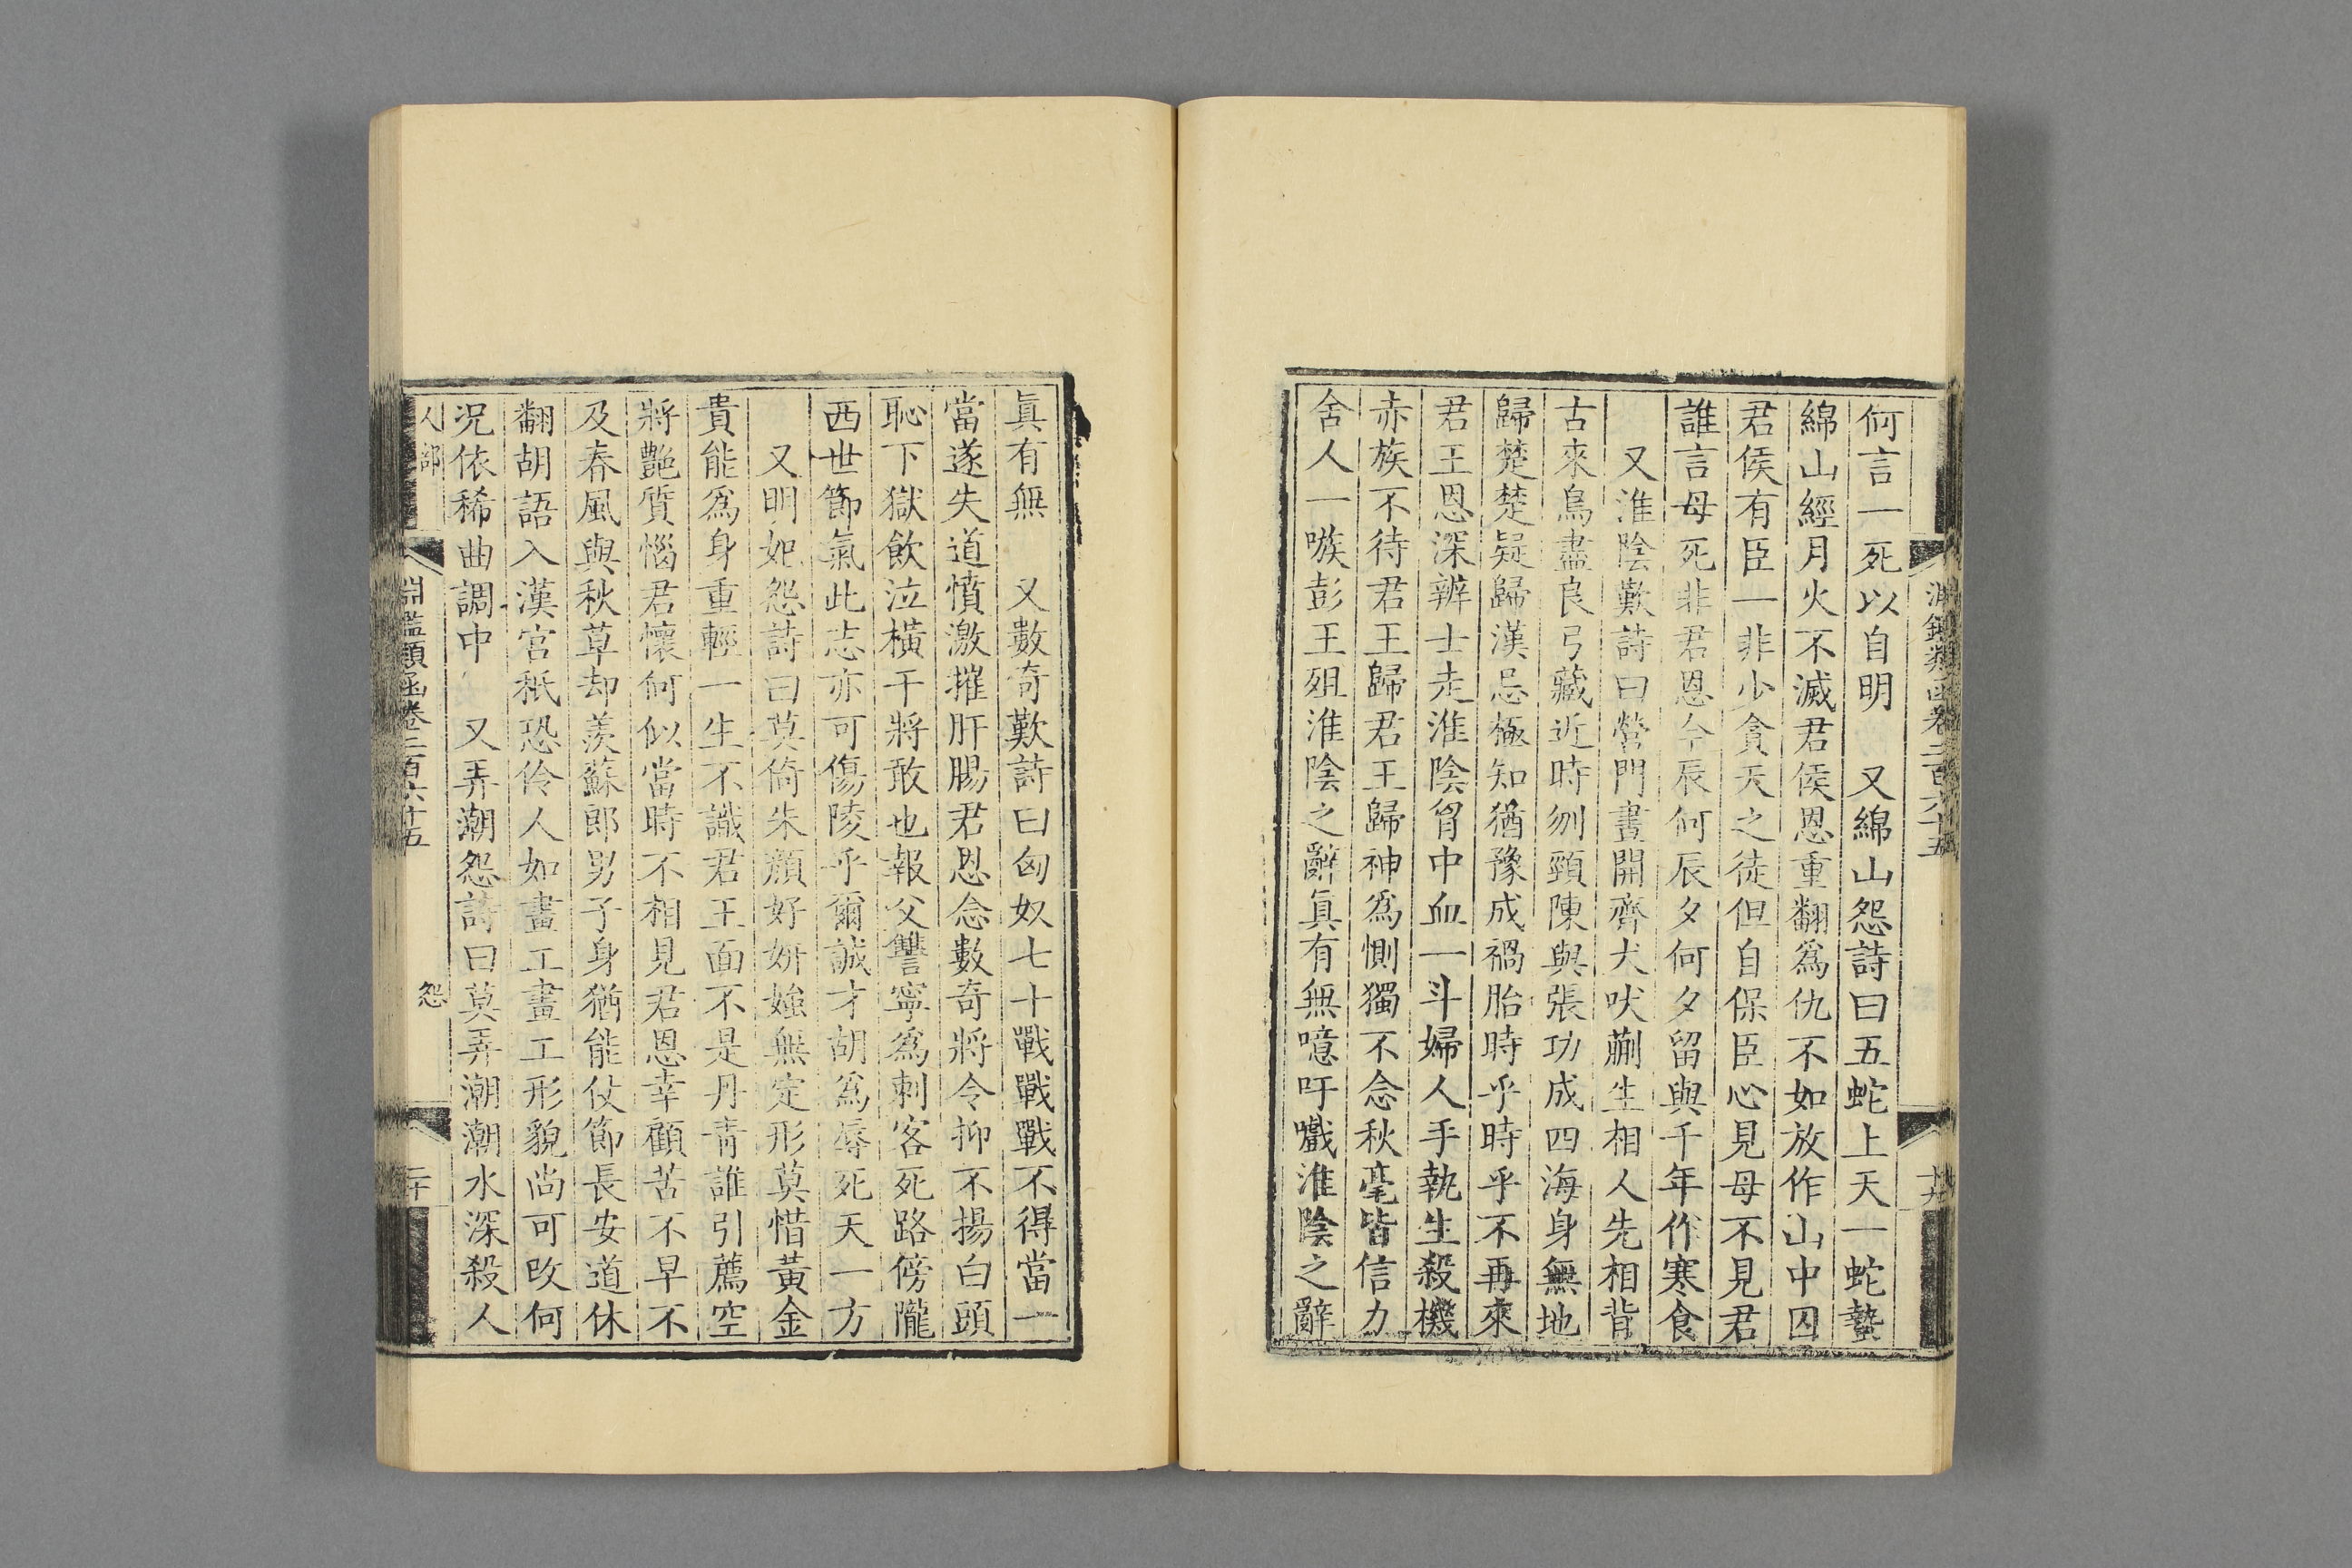 何言一死以自明　又綿山怨詩曰五蛇上天一蛇蟄
綿山經月火不滅君侯恩重翻爲仇不如放作山中囚
君侯有臣一非少貪天之徒但自保臣心見母不見君
誰言母死非君恩今辰何辰夕何夕留與千年作寒食
又淮陰歎詩曰營門晝開齊犬吠蒯生相人先相背
古來鳥盡良弓藏近時刎頸陳與張功成四海身無地
歸楚楚疑歸漢忌極知猶豫成禍胎時乎時乎不再來
君王恩深辨士走淮陰胷中血一斗婦人手執生殺機
赤族不待君王歸君王歸神爲惻獨不念秋毫皆信力
舍人一嗾彭王殂淮陰之辭眞有無噫吁嚱淮陰之辭
眞有無　又數奇歎詩曰匈奴七十戰戰戰不得當一
當遂失道憤激摧肝腸君恩念數奇將令抑不揚白頭
恥下獄飮泣橫干將敢也報父讐寧爲刺客死路傍隴
西世節氣此志亦可傷陵乎爾誠才胡爲辱死天一方
又明妃怨詩曰莫倚朱顏好妍媸無定形莫惜黃金
貴能爲身重輕一生不識君王面不是丹青誰引薦空
將艷質惱君懷何似當時不相見君恩幸顧苦不早不
及春風與秋草却羨蘇郎男子身猶能仗節長安道休
翻胡語入漢宮秖恐伶人如畫工畫工形貌尚可改何
况依稀曲調中　又弄潮怨詩曰莫弄潮潮水深殺人
人部
淵鑑類函卷三百六十五
怨
二十